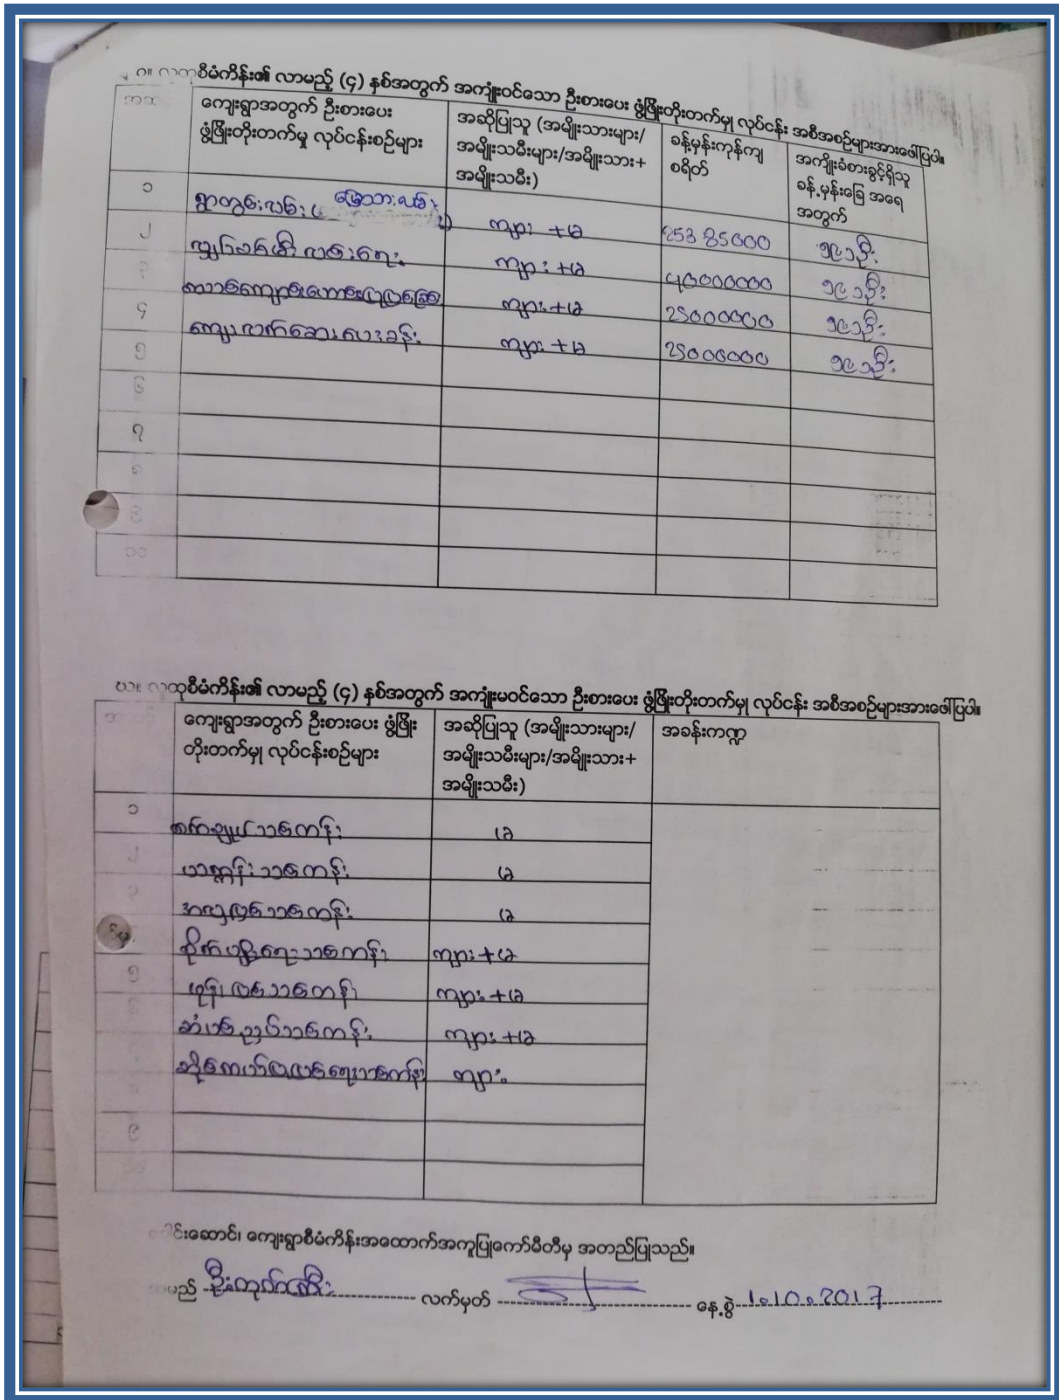 ၊ ဂ။ လူထုစီမံကိန်း၏ လာမည့် (၄) နှစ်အတွက် အကျုံးဝင်သော ဦးစားပေး ဖွံ့ဖြိုးတိုးတက်မှု လုပ်ငန်း အစီအစဉ်များအားဖေါ်ပြပါ။
ကျေးရွာအတွက် ဦးစားပေး ဖွံ့ဖြိုးတိုးတက်မှု လုပ်ငန်းစဉ်များ အဆိုပြုသူ (အမျိုးသားများ/အမျိုးသမီးများ/အမျိုးသား+အမျိုးသမီး) ခန့်မှန်းကုန်ကျစရိတ် အကျိုးခံစားခွင့်ရှိသူ ခန့်မှန်းခြေ အရေအတွက်
၁ ရွာတွင်းလမ်း ( မြေသားလမ်း ) ကျား +မ 25385000 ၅၉၁ဦး
၂ လျှပ်စစ်မီး လင်းရေး ကျား +မ 40000000 ၅၉၁ဦး
၃ ကျား +မ 25000000 ၅၉၁ဦး
၄ ကျေးလက်ဆေးပေးခန်း ကျား +မ 25000000 ၅၉၁ဦး
၅
၆
၇
၈
၉
၁၀
ဃ။ လူထုစီမံကိန်း၏ လာမည့် (၄) နှစ်အတွက် အကျုံးမဝင်သော ဦးစားပေး ဖွံ့ဖြိုးတိုးတက်မှု လုပ်ငန်း အစီအစဉ်များအားဖေါ်ပြပါ။
ကျေးရွာအတွက် ဦးစားပေး ဖွံ့ဖြိုးတိုးတက်မှု လုပ်ငန်းစဉ်များ အဆိုပြုသူ (အမျိုးသားများ/အမျိုးသမီးများ/အမျိုးသား+အမျိုးသမီး) အခန်းကဏ္ဍ
၁ စက်ချုပ်သင်တန်း မ
၂ ယက္ကန်းသင်တန်း မ
၃ အလှပြင်သင်တန်း မ
စိုက်ပျိုးရေးသင်တန်း ကျား +မ
၅ ဖုန်းပြင်သင်တန်း ကျား +မ
ဆံပင်ညှပ်သင်တန်း ကျား +မ
ဆိုင်ကယ်ပြုပြင်ရေးသင်တန်း ကျား
၉
ခေါင်းဆောင်၊ ကျေးရွာစီမံကိန်းအထောက်အကူပြုကော်မီတီမှ အတည်ပြုသည်။
အမည် လက်မှတ် နေ့စွဲ 1.10.2017